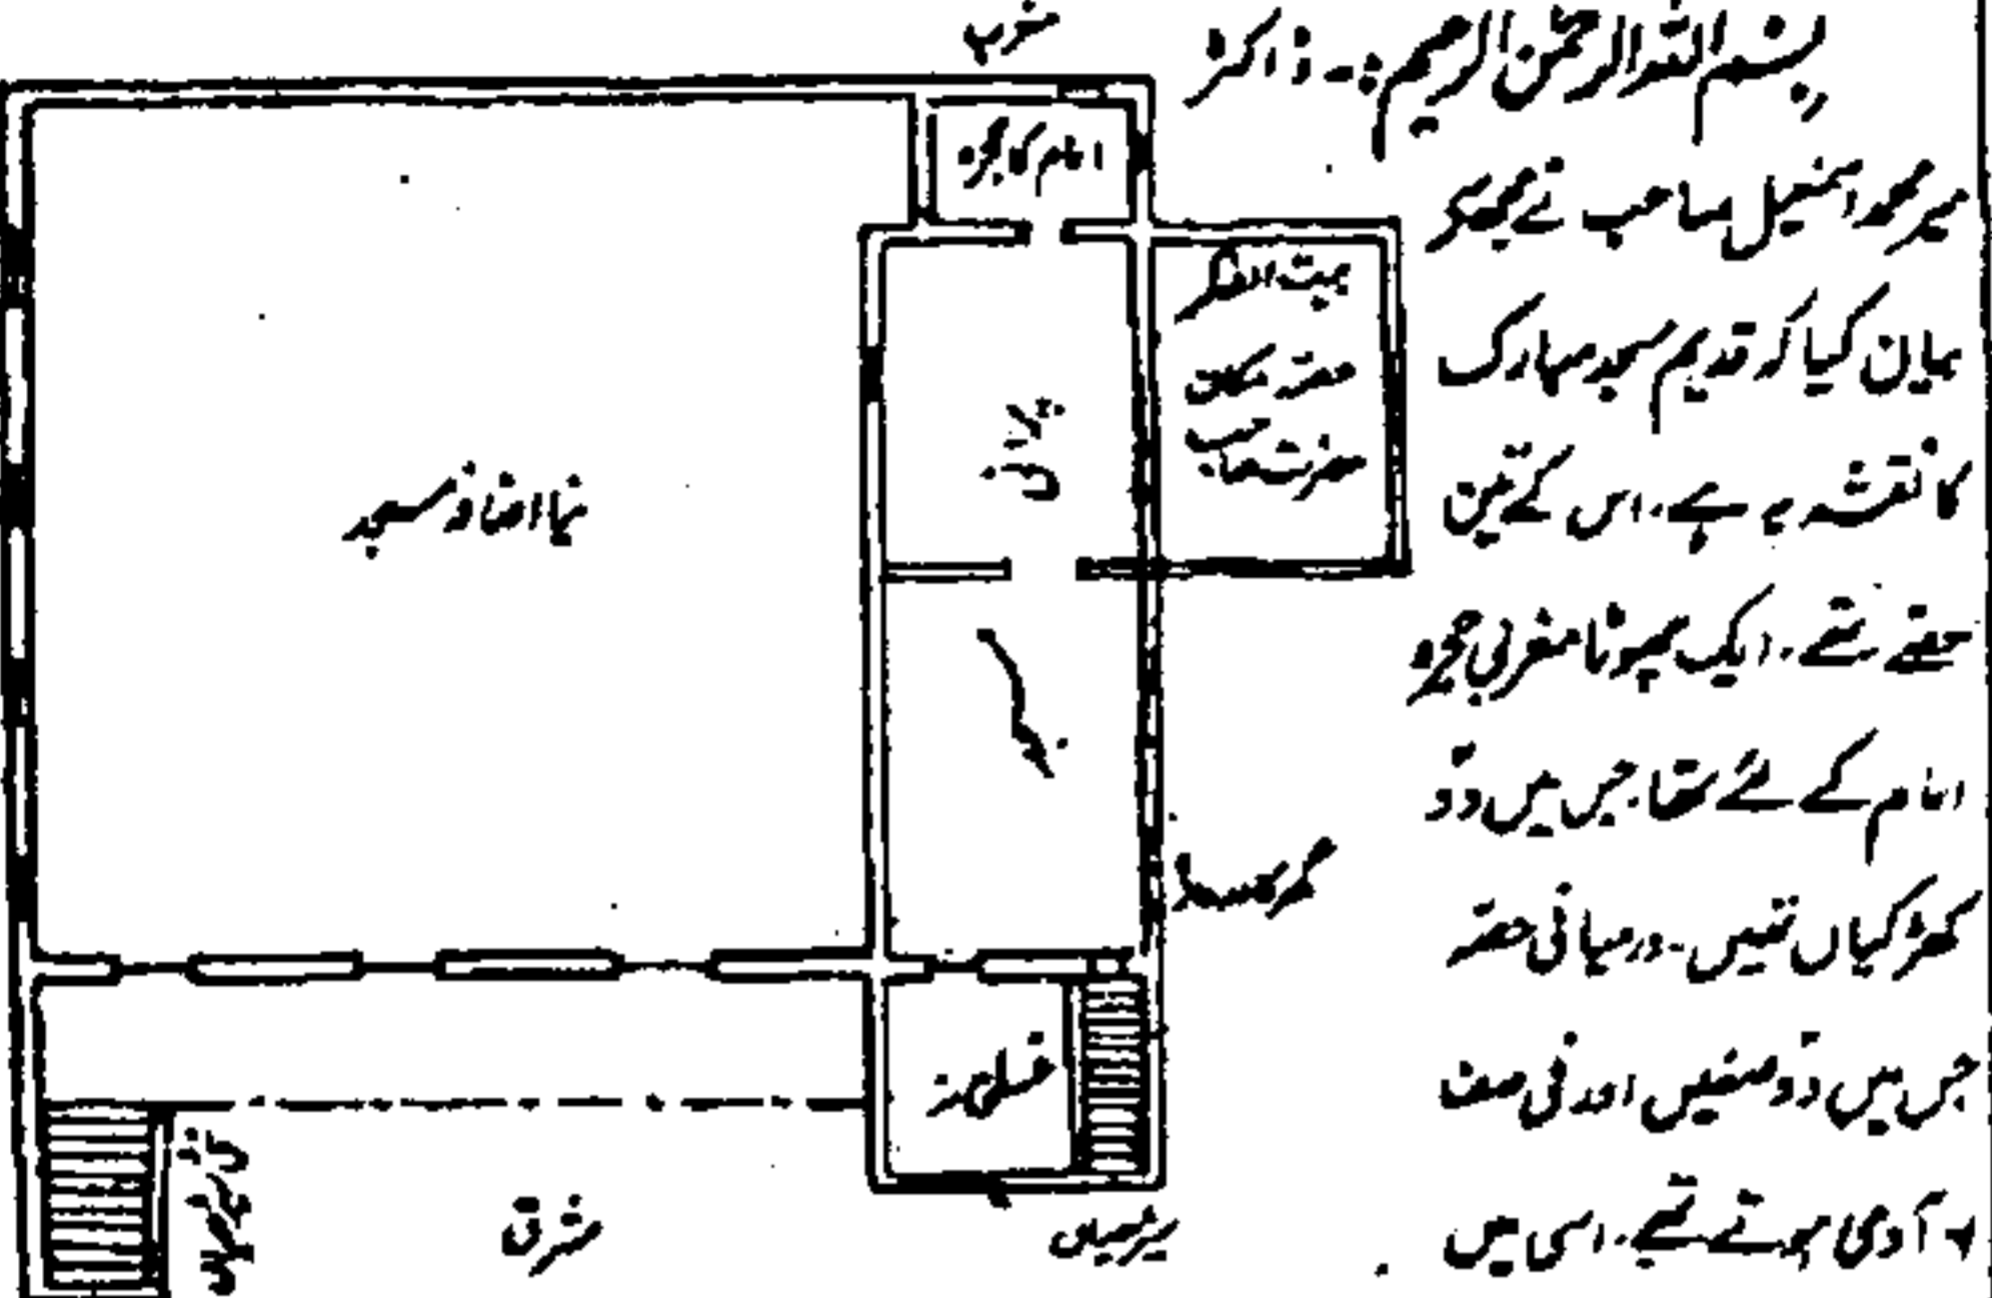 بسم اللہ الرحمٰن الرحیم :۔ ڈاکٹر
میر محمد اسمٰعیل صاحب نے مجھ سے
بیان کیا کہ قدیم مسجد مبارک
کا نقشہ یہ ہے۔ اس کے تین
حصے تھے۔ ایک چھوٹا مغربی حجرہ
امام کے لئے تھا۔ جس میں دو
کھڑکیاں تھیں۔ درمیانی حصہ
جس میں دو صفیں اور فی صف
۶ آدمی ہوتے تھے۔ اسی میں
مغرب
امام کا حجرہ
بیت الفکر
حصہ مکان
حضرت صاحب
پرانی
مسجد
نیا اضافہ مسجد
گھر کا
غسل خانہ
سیڑھیاں
مشرق
نئی سیڑھیاں